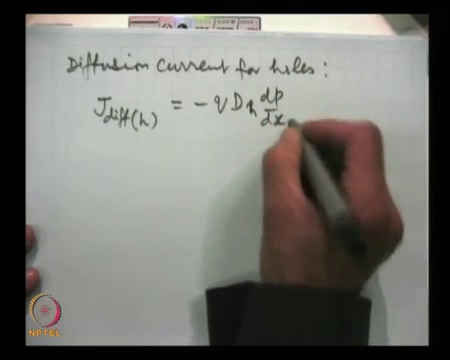 Diffusion Current for holes :
J diff(h) = - q D h dp/dx
NPTEL